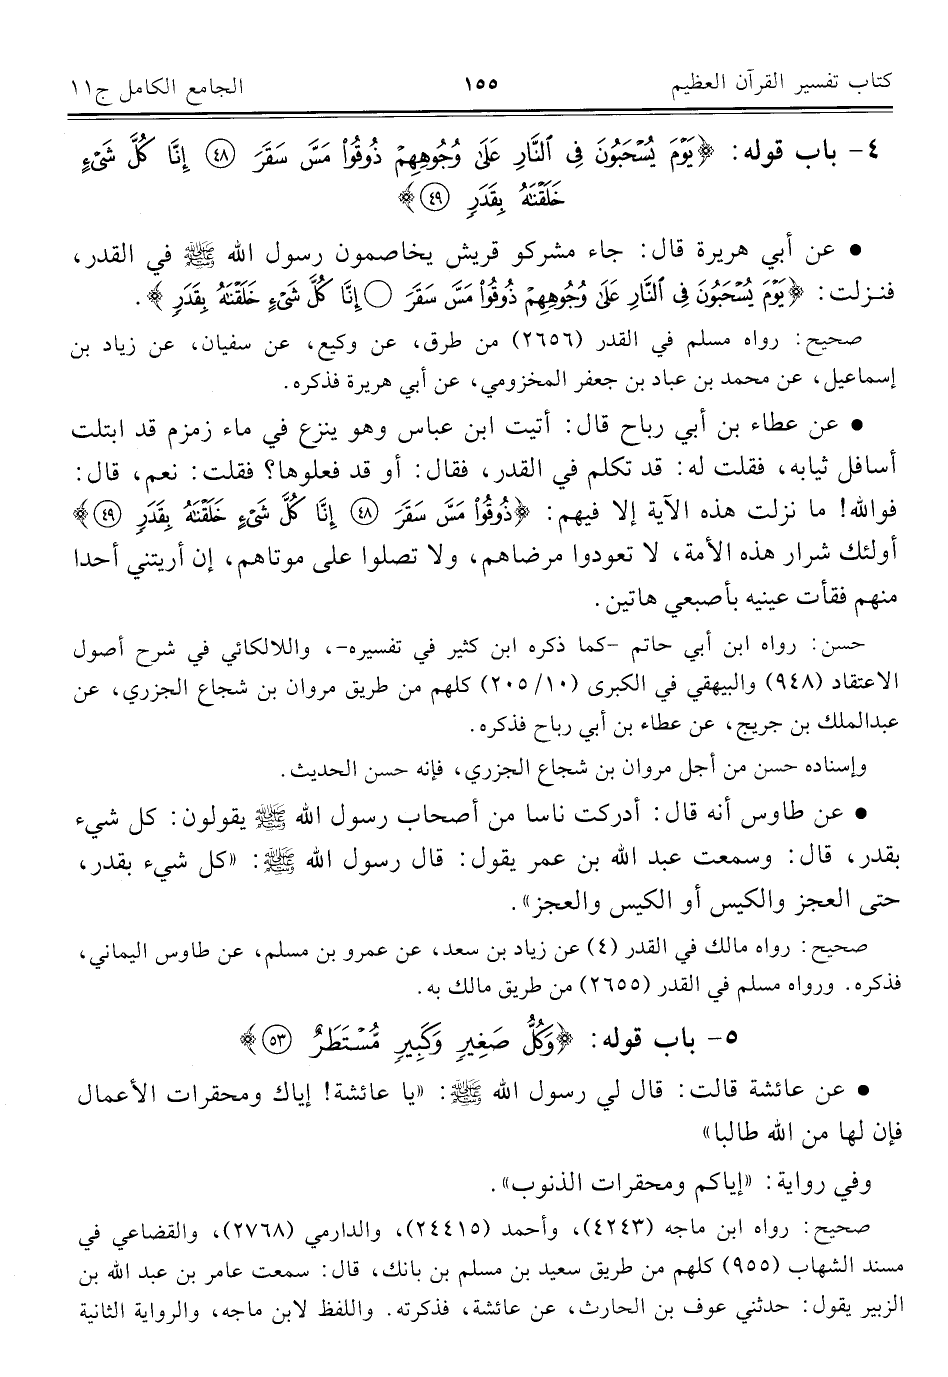 كتاب تفسير القرآن العظيم ١٥٥ الجامع الكامل ج١١
٤- باب قوله: ﴿يَوْمَ يُسْحَبُونَ فِي النَّارِ عَلَىٰ وُجُوهِهِمْ ذُوقُوا مَسَّ سَقَرَ ٤٨ إِنَّا كُلَّ شَيْءٍ
خَلَقْنَٰهُ بِقَدَرٍ ٤٩﴾
• عن أبي هريرة قال: جاء مشركو قريش يخاصمون رسول الله ﷺ في القدر،
فنزلت: ﴿يَوْمَ يُسْحَبُونَ فِي النَّارِ عَلَىٰ وُجُوهِهِمْ ذُوقُوا مَسَّ سَقَرَ ○ إِنَّا كُلَّ شَيْءٍ خَلَقْنَٰهُ بِقَدَرٍ﴾.
صحيح: رواه مسلم في القدر (٢٦٥٦) من طرق، عن وكيع، عن سفيان، عن زياد بن
إسماعيل، عن محمد بن عباد بن جعفر المخزومي، عن أبي هريرة فذكره.
• عن عطاء بن أبي رباح قال: أتيت ابن عباس وهو ينزع في ماء زمزم قد ابتلت
أسافل ثيابه، فقلت له: قد تكلم في القدر، فقال: أو قد فعلوها؟ فقلت: نعم، قال:
فوالله! ما نزلت هذه الآية إلا فيهم: ﴿ذُوقُوا مَسَّ سَقَرَ ٤٨ إِنَّا كُلَّ شَيْءٍ خَلَقْنَٰهُ بِقَدَرٍ ٤٩﴾
أولئك شرار هذه الأمة، لا تعودوا مرضاهم، ولا تصلوا على موتاهم، إن أريتني أحدا
منهم فقأت عينيه بأصبعي هاتين.
حسن: رواه ابن أبي حاتم -كما ذكره ابن كثير في تفسيره-، واللالكائي في شرح أصول
الاعتقاد (٩٤٨) والبيهقي في الكبرى (١٠/ ٢٠٥) كلهم من طريق مروان بن شجاع الجزري، عن
عبدالملك بن جريج، عن عطاء بن أبي رباح فذكره.
وإسناده حسن من أجل مروان بن شجاع الجزري، فإنه حسن الحديث.
• عن طاوس أنه قال: أدركت ناسا من أصحاب رسول الله ﷺ يقولون: كل شيء
بقدر، قال: وسمعت عبد الله بن عمر يقول: قال رسول الله ﷺ: «كل شيء بقدر،
حتى العجز والكيس أو الكيس والعجز».
صحيح: رواه مالك في القدر (٤) عن زياد بن سعد، عن عمرو بن مسلم، عن طاوس اليماني،
فذكره. ورواه مسلم في القدر (٢٦٥٥) من طريق مالك به.
٥- باب قوله: ﴿وَكُلُّ صَغِيرٍ وَكَبِيرٍ مُّسْتَطَرٌ ٥٣﴾
• عن عائشة قالت: قال لي رسول الله ﷺ: «يا عائشة! إياك ومحقرات الأعمال
فإن لها من الله طالبا»
وفي رواية: «إياكم ومحقرات الذنوب».
صحيح: رواه ابن ماجه (٤٢٤٣)، وأحمد (٢٤٤١٥)، والدارمي (٢٧٦٨)، والقضاعي في
مسند الشهاب (٩٥٥) كلهم من طريق سعيد بن مسلم بن بانك، قال: سمعت عامر بن عبد الله بن
الزبير يقول: حدثني عوف بن الحارث، عن عائشة، فذكرته. واللفظ لابن ماجه، والرواية الثانية